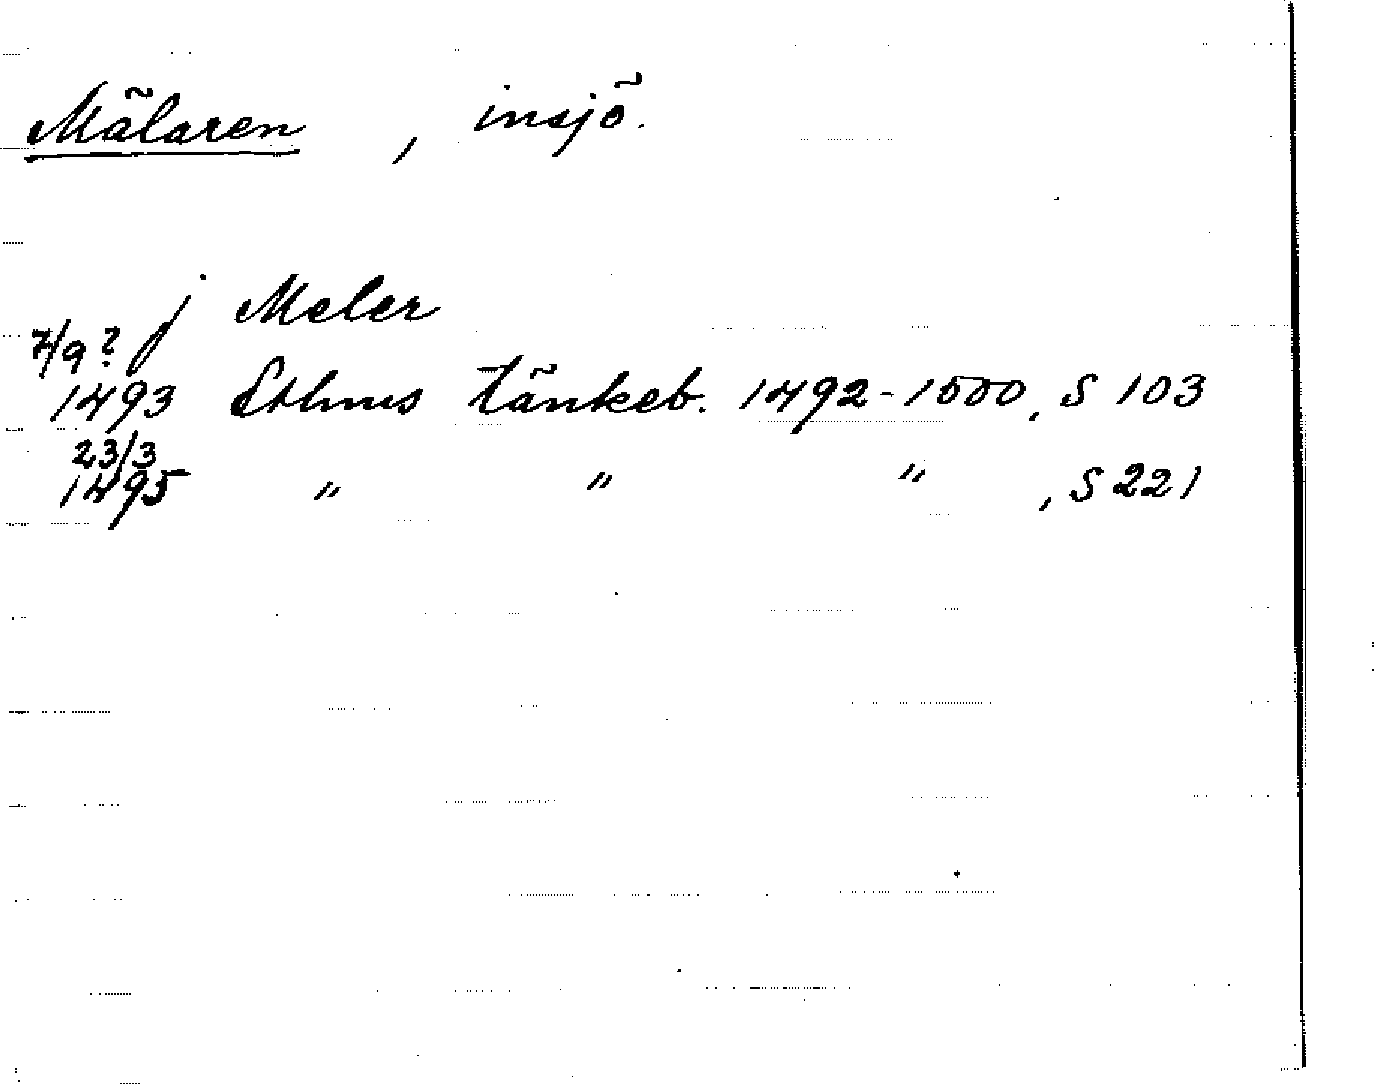 Mälaren , insjö.
j Meler
7/9?
1493 Sthms tänkeb. 1492-1500, S 103
23/3
1495 " " " , S 221